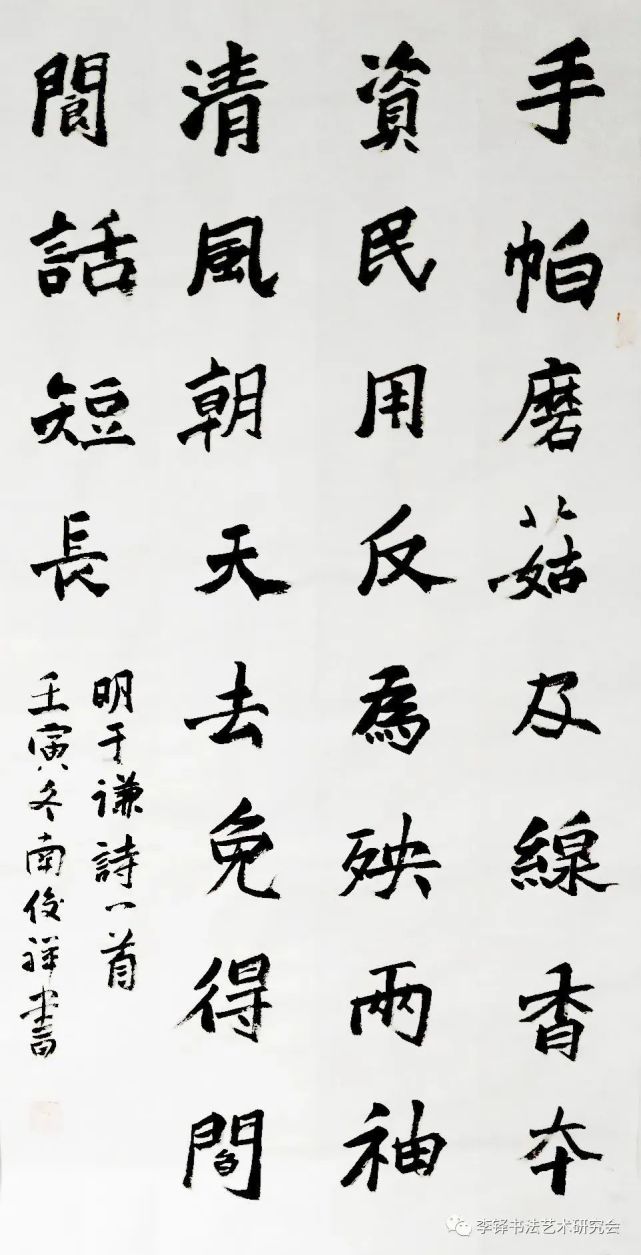 手帕磨菇及線香本
資民用反為殃兩袖
清風朝天去免得閻
閬話短長
明于謙詩一首
壬寅冬南俊祥書
李铎书法艺术研究会